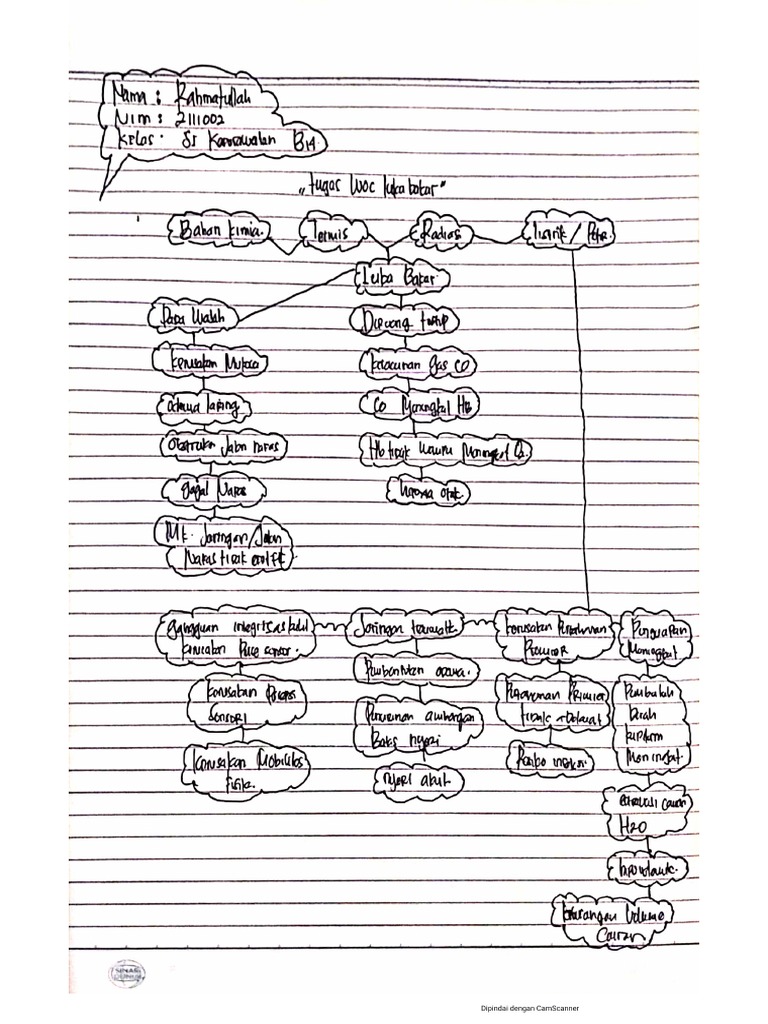 Nama : Rahmatullah
Nim : 2111002
Kelas : S1 Keperawatan B14
"tugas WOC luka bakar"
Bahan kimia.
Termis
Radiasi
listrik / Petir
Luka Bakar.
Pada Wajah
Diruang tertutup
Kerusakan Mukosa
keracunan gas CO
Odema laring
CO Mengikat Hb
Obstruksi Jalan nafas
Hb tidak Mampu Mengikat O2.
gagal Nafas
hipoxia otak.
Mk. Jaringan/Jalan
Nafas tidak efektif
gangguan integritas kulit
kerusakan Pace sensor.
Jaringan traumatik.
kerusakan Pertahanan
Primer
Penguapan
Meningkat
Kerusakan Proses
Sensori
Pembentukan edema.
Pertahanan Primer
tidak adekuat
Pembuluh
Darah
kapiler
Meningkat
Kerusakan Mobilitas
fisik.
Penurunan ambangan
Batas nyeri
nyeri akut
Resiko infeksi.
cairan
H2O
kekurangan Volume
Cairan
SINAR
DUNIA
Dipindai dengan CamScanner